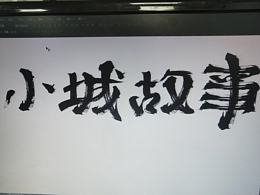 小城故事